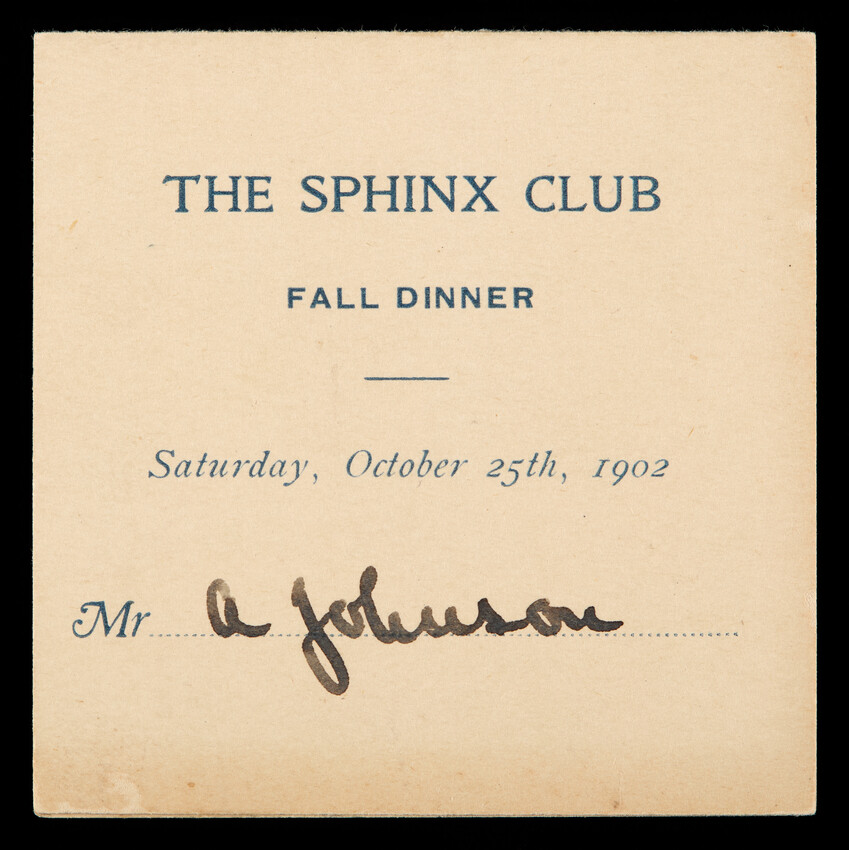 THE SPHINX CLUB
FALL DINNER
Saturday, October 25th, 1902
Mr A Johnson